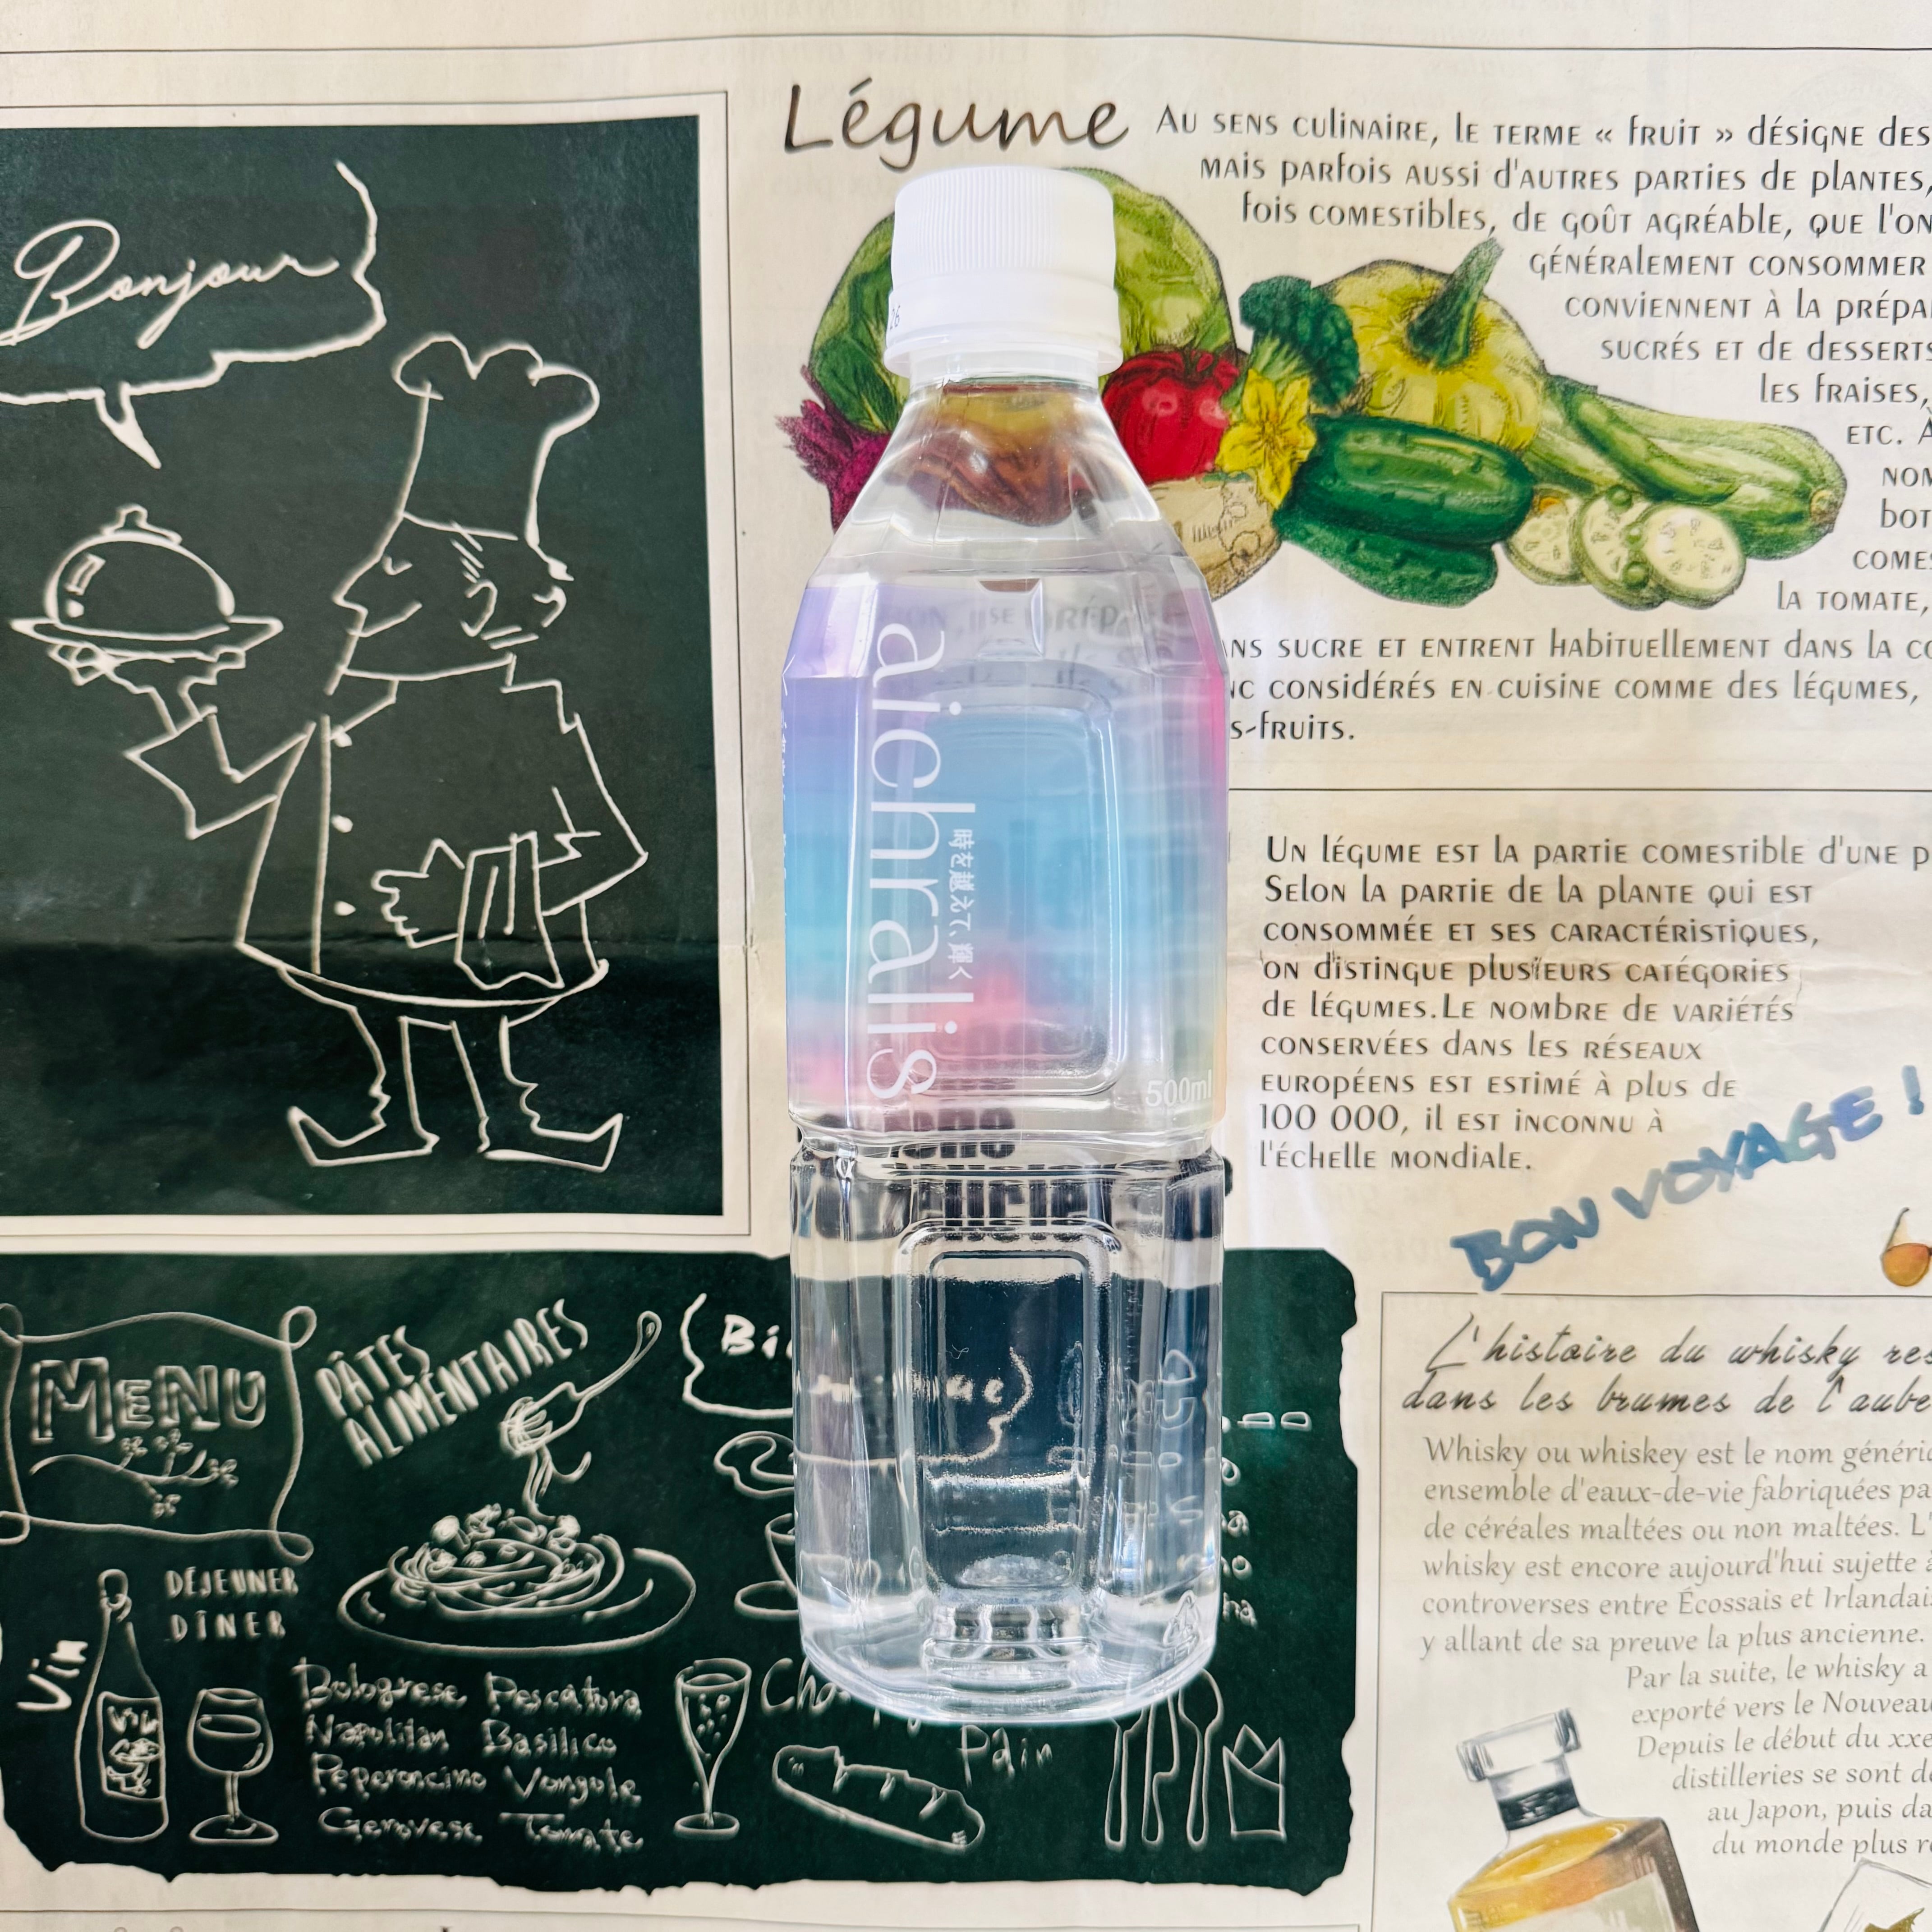 Bonjour
Légume
Au sens culinaire, le terme « fruit » désigne des
mais parfois aussi d'autres parties de plantes,
fois comestibles, de goût agréable, que l'on
généralement consommer
conviennent à la prépa
sucrés et de desserts
les fraises,
etc. À
nom
bot
comes
la tomate,
ns sucre et entrent habituellement dans la co
nc considérés en cuisine comme des légumes,
s-fruits.
26
aichralis
時を越えて、輝く
500ml
Un légume est la partie comestible d'une p
Selon la partie de la plante qui est
consommée et ses caractéristiques,
on distingue plusieurs catégories
de légumes.Le nombre de variétés
conservées dans les réseaux
européens est estimé à plus de
100 000, il est inconnu à
l'échelle mondiale.
BON VOYAGE !
MENU
PÂTES
ALIMENTAIRES
DÉJEUNER
DÎNER
Vin
Bolognese Pescatora
Napolitan Basilico
Peperoncino Vongole
Genovese Tomate
Pain
L'histoire du whisky res
dans les brumes de l'aube
Whisky ou whiskey est le nom génériq
ensemble d'eaux-de-vie fabriquées pa
de céréales maltées ou non maltées. L'
whisky est encore aujourd'hui sujette à
controverses entre Écossais et Irlandais
y allant de sa preuve la plus ancienne.
Par la suite, le whisky a
exporté vers le Nouveau
Depuis le début du xxe
distilleries se sont dé
au Japon, puis da
du monde plus r